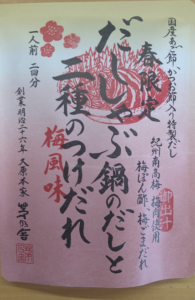 国産あご節、かつお節入り特製だし
春限定
紀州南高梅 梅肉使用
梅ぽん酢、梅ごまだれ
だししゃぶ鍋のだしと
二種のつけだれ
梅風味
一人前 二回分
創業明治二十六年 久原本家 茅乃舎